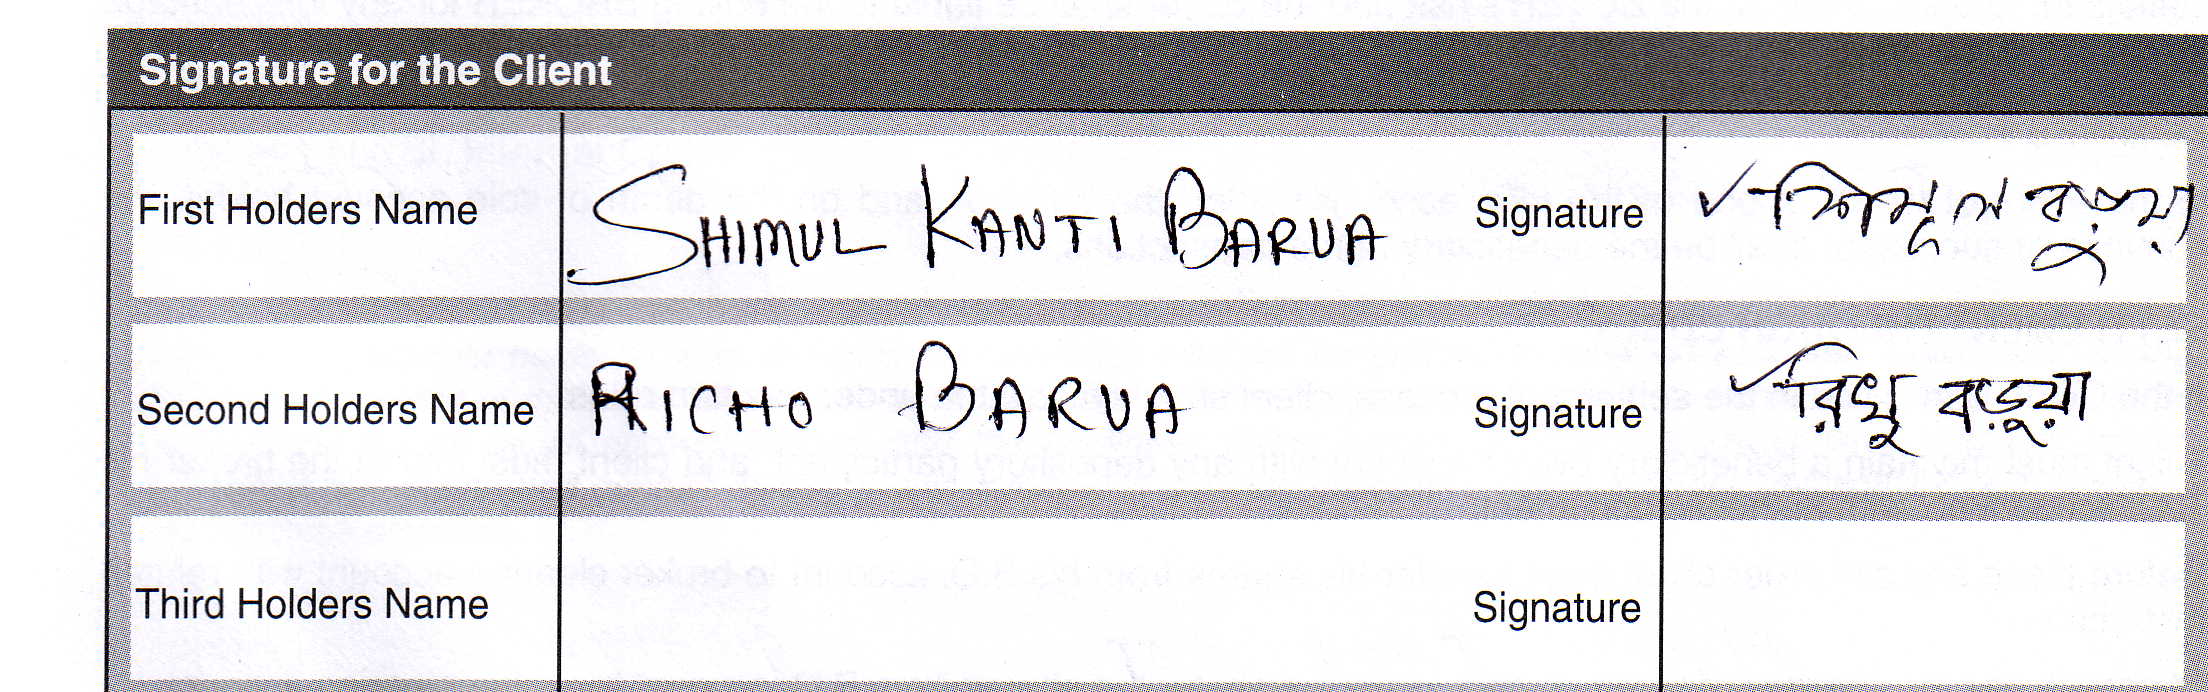 Signature for the Client
First Holders Name SHIMUL KANTI BARUA Signature শিমুল বড়ুয়া
Second Holders Name RICHO BARUA Signature রিঘু বড়ুয়া
Third Holders Name Signature